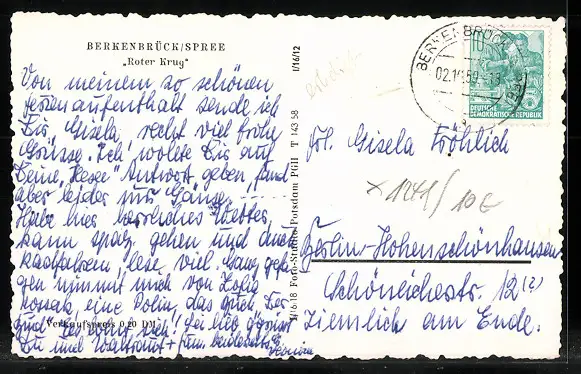 BERKENBRÜCK/SPREE
„Roter Krug“
Von meinem so schönen
Ferienaufenthalt sende ich
Dir, Gisela, recht viel frohe
Grüsse. Ich wollte Dir auf
Deine Antwort geben, fand
aber leider nur Gänse.
Habe hier herrliches Wetter,
kann spaz. gehen und auch
radfahren, lese viel. Ganz gefan
gen nimmt mich von Zofia
Kossak, eine Polin, das Buch Der
Held
Verkaufspreis 0,20 DM
Du und Waltraut +
I/16/12
V/6/18 Foto-Studio Potsdam PGH T 143 58
BERKENBRÜCK
02.10.59
10
DEUTSCHE
DEMOKRATISCHE REPUBLIK
Frl. Gisela Fröhlich
x 1241/ 10 €
Berlin-Hohenschönhausen
Schöneichestr. 12 (?)
Ziemlich am Ende.